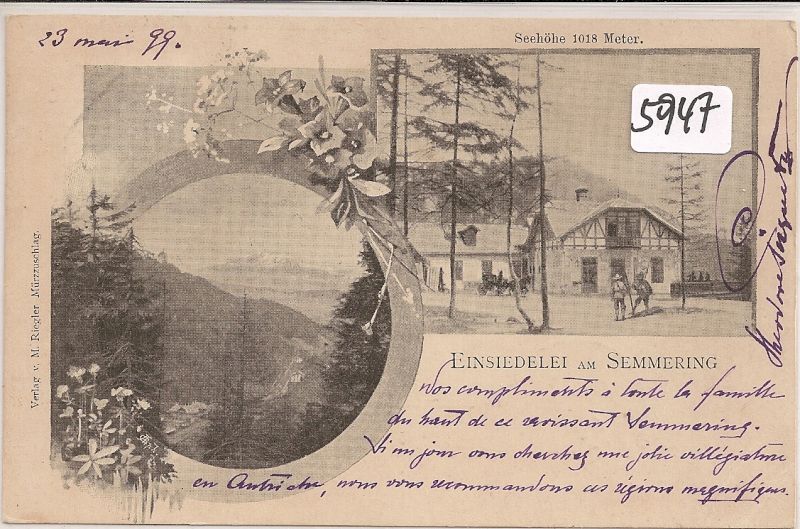 23 mai 99.
Seehöhe 1018 Meter.
5947
Verlag v. M. Riegler Mürzzuschlag.
EINSIEDELEI AM SEMMERING
Nos compliments à toute la famille
du haut de ce ravissant Semmering.
Si un jour vous cherchez une jolie villégiature
en Autriche, nous vous recommandons ces régions magnifiques.
Theodore